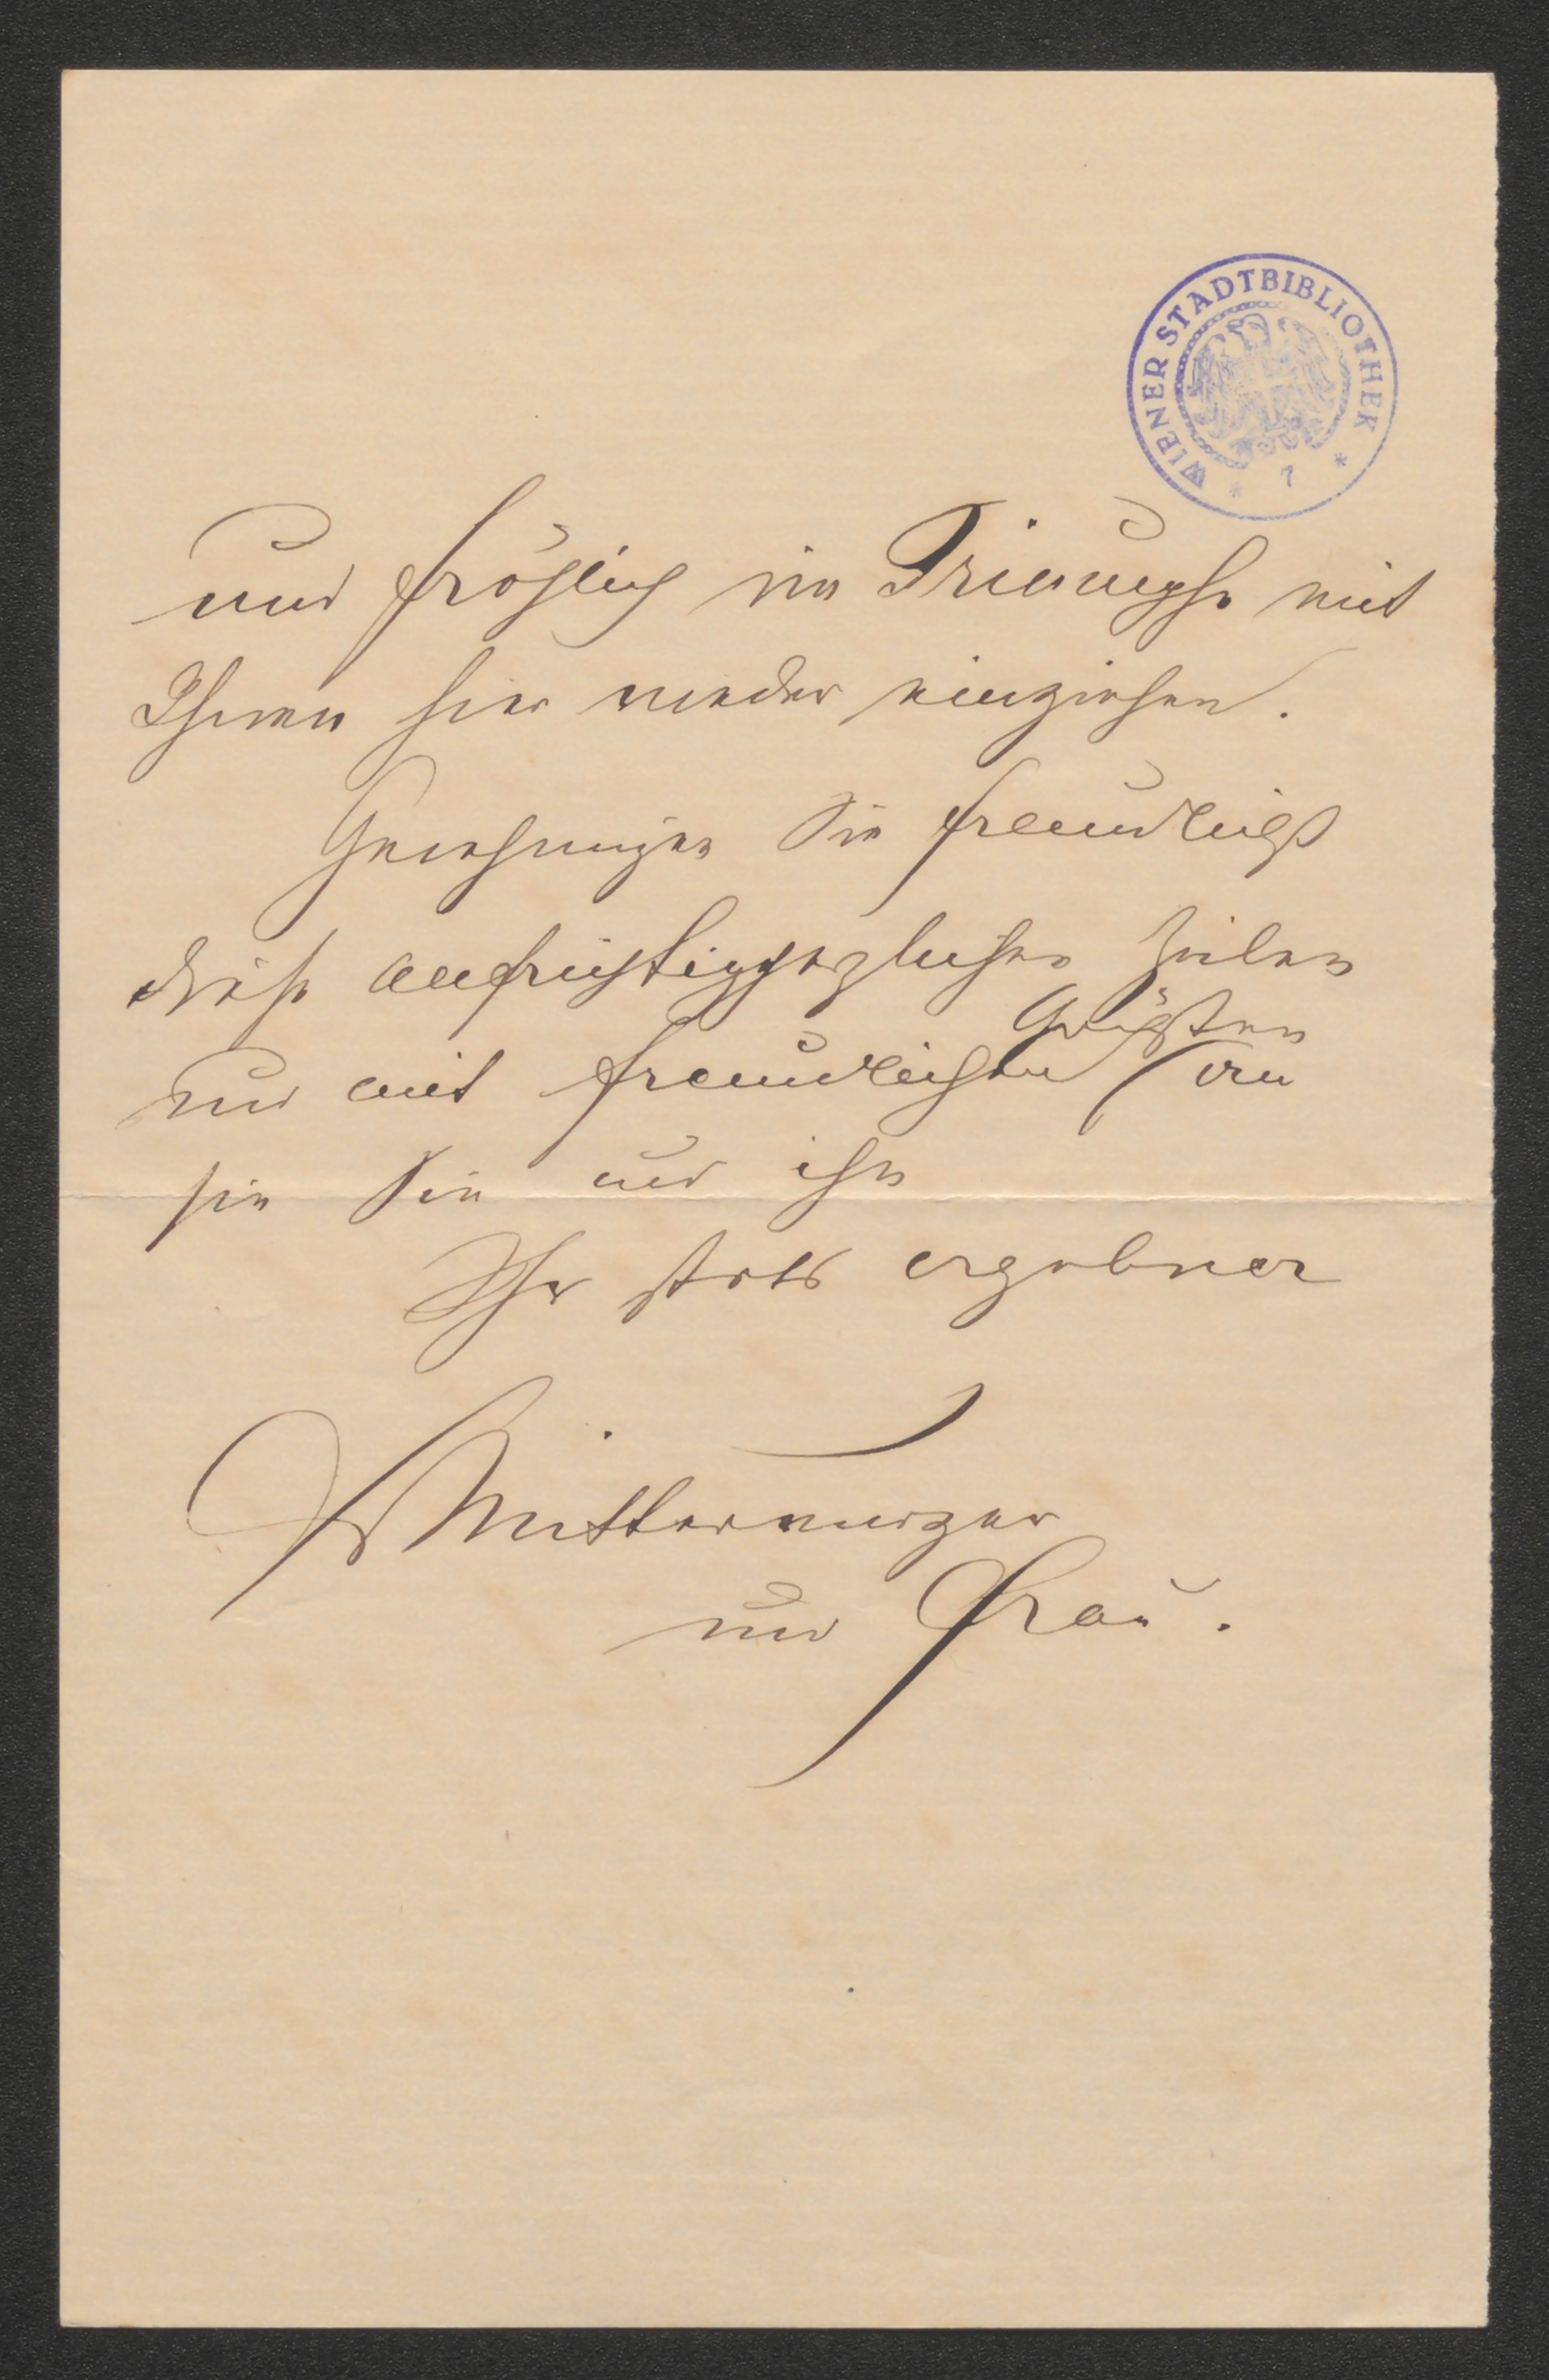 WIENER STADTBIBLIOTHEK
* 7 *
und fröhlich im Triumphe mit
Ihnen hier wieder einziehen.
Genehmigen Sie freundlichst
diese aufrichtigherzlichen Zeilen
und mit freundlichen Grüßen an
sie Sie und ihn
Ihr stets ergebner
FrMitterwurzer
und Frau.